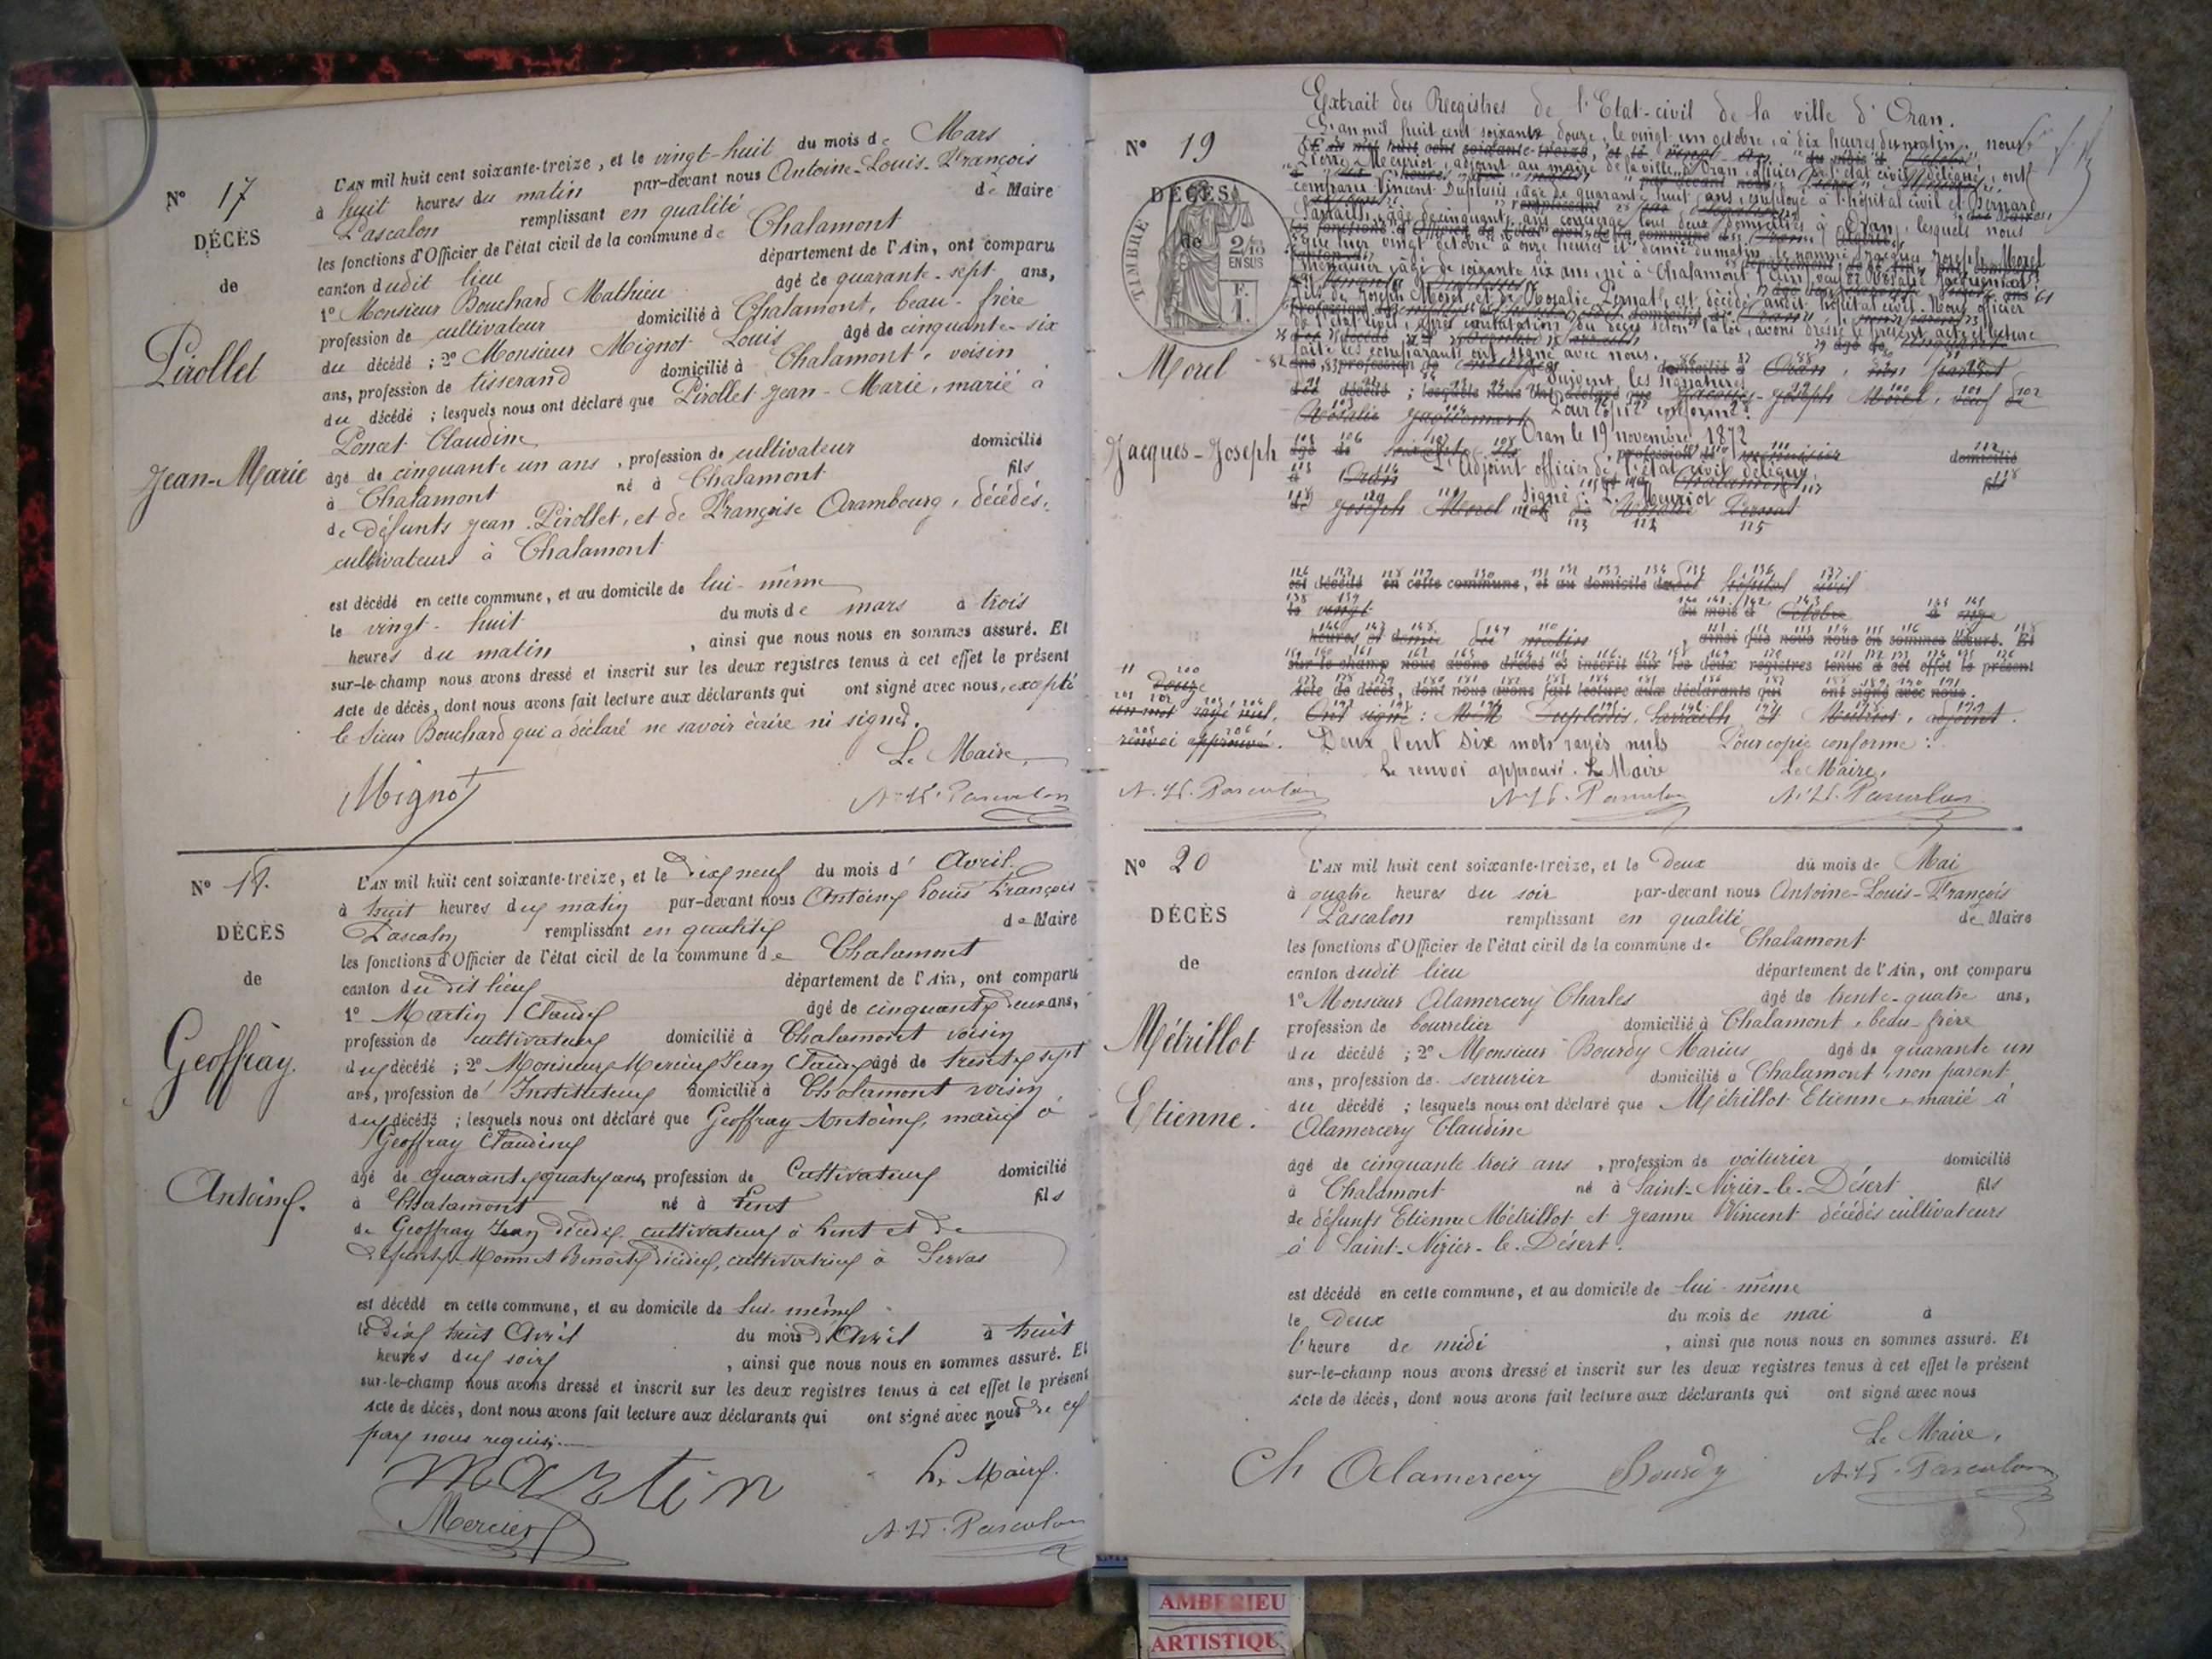 N° 17
DÉCÈS
de
Pirollet
Jean-Marie
L'AN mil huit cent soixante-treize, et le vingt-huit du mois de Mars
à huit heures du matin par-devant nous Antoine-Louis-François
Pascalon remplissant en qualité de Maire
les fonctions d'Officier de l'état civil de la commune de Chalamont
canton dudit lieu département de l'Ain, ont comparu
1° Monsieur Bouchard Mathieu âgé de quarante-sept ans,
profession de cultivateur domicilié à Chalamont, beau-frère
du décédé ; 2° Monsieur Mignot Louis âgé de cinquante-six
ans, profession de tisserand domicilié à Chalamont, voisin
du décédé ; lesquels nous ont déclaré que Pirollet Jean-Marie, marié à
Poncet Claudine
âgé de cinquante un ans, profession de cultivateur domicilié
à Chalamont né à Chalamont fils
de défunts Jean Pirollet, et de Françoise Arambourg, décédés,
cultivateurs à Chalamont
est décédé en cette commune, et au domicile de lui-même
le vingt-huit du mois de mars à trois
heures du matin, ainsi que nous nous en sommes assuré. Et
sur-le-champ nous avons dressé et inscrit sur les deux registres tenus à cet effet le présent
Acte de décès, dont nous avons fait lecture aux déclarants qui ont signé avec nous, excepté
le sieur Bouchard qui a déclaré ne savoir écrire ni signer.
Le Maire,
Mignot A. L. F. Pascalon
N° 18.
DÉCÈS
de
Geoffray.
Antoine.
L'AN mil huit cent soixante-treize, et le dix neuf du mois d' Avril
à huit heures du matin par-devant nous Antoine Louis François
Pascalon remplissant en qualité de Maire
les fonctions d'Officier de l'état civil de la commune de Chalamont
canton du dit lieu département de l'Ain, ont comparu
1° Martin Claude âgé de cinquante deux ans,
profession de cultivateur domicilié à Chalamont voisin
du décédé ; 2° Monsieur Mercier Jean Claude âgé de trente sept
ans, profession de Instituteur domicilié à Chalamont voisin
du décédé ; lesquels nous ont déclaré que Geoffray Antoine, marié à
Geoffray Claudine
âgé de quarante quatre ans, profession de Cultivateur domicilié
à Chalamont né à Lent fils
de Geoffray Jean décédé cultivateur à Lent et de
défunte Monnet Benoite décédée, cultivatrice à Servas
est décédé en cette commune, et au domicile de lui-même
le dix huit Avril du mois d'Avril à huit
heures du soir, ainsi que nous nous en sommes assuré. Et
sur-le-champ nous avons dressé et inscrit sur les deux registres tenus à cet effet le présent
Acte de décès, dont nous avons fait lecture aux déclarants qui ont signé avec nous de ce
par nous requis.
Martin Le Maire.
Mercier A. L. F. Pascalon
Extrait des Régistres de l'Etat-civil de la ville d'Oran.
N° 19
DÉCÈS
de
TIMBRE
2/10
EN SUS
F.
1.
Morel
Jacques-Joseph
L'an mil huit cent soixante douze, le vingt un octobre, à dix heures du matin, nous
Pierre Meuriot, adjoint au maire de la ville d'Oran, officier de l'état civil délégué, ont
comparu Vincent Duplessis, âgé de quarante huit ans, employé à l'hôpital civil et Bernard
Sarrailh, âgé de cinquante ans, concierge, tous deux domiciliés à Oran, lesquels nous
que hier vingt octobre à onze heures et demie du matin, le nommé Jacques Joseph Morel
menuisier, âgé de soixante six ans, né à Chalamont (Ain), veuf de Rosalie Jacquemard
fils de Joseph Morel et de Rosalie Pernat, est décédé audit hôpital civil. Nous officier
de l'état civil, après constatation du décès selon la loi, avons dressé le présent acte, lecture
faite les comparants ont signé avec nous.
Suivent les signatures
Pour copie conforme :
Oran le 19 novembre 1872
L'Adjoint officier de l'état civil délégué
Signé P. Meuriot
est décédé en cette commune, et au domicile dudit hôpital civil
le vingt du mois d' Octobre à onze
heures et demie du matin, ainsi que nous nous en sommes assuré. Et
sur-le-champ nous avons dressé et inscrit sur les deux registres tenus à cet effet le présent
Acte de décès, dont nous avons fait lecture aux déclarants qui ont signé avec nous.
Douze
un mot rayé nul.
renvoi approuvé.
Ont signé : MM Duplessis, Sarrailh et Meuriot, adjoint.
Deux Cent Six mots rayés nuls Pour copie conforme :
Le renvoi approuvé. Le Maire Le Maire,
A. L. F. Pascalon A. L. F. Pascalon A. L. F. Pascalon
N° 20
DÉCÈS
de
Métrillot
Etienne.
L'AN mil huit cent soixante-treize, et le deux du mois de Mai
à quatre heures du soir par-devant nous Antoine-Louis-François
Pascalon remplissant en qualité de Maire
les fonctions d'Officier de l'état civil de la commune de Chalamont
canton dudit lieu département de l'Ain, ont comparu
1° Monsieur Alamercery Charles âgé de trente-quatre ans,
profession de bourrelier domicilié à Chalamont, beau-frère
du décédé ; 2° Monsieur Bourdy Marius âgé de quarante un
ans, profession de serrurier domicilié à Chalamont, non parent
du décédé ; lesquels nous ont déclaré que Métrillot Etienne, marié à
Alamercery Claudine
âgé de cinquante trois ans, profession de voiturier domicilié
à Chalamont né à Saint-Nizier-le-Désert fils
de défunts Etienne Métrillot et Jeanne Vincent décédés cultivateurs
à Saint-Nizier-le-Désert.
est décédé en cette commune, et au domicile de lui-même
le deux du mois de mai à
l'heure de midi, ainsi que nous nous en sommes assuré. Et
sur-le-champ nous avons dressé et inscrit sur les deux registres tenus à cet effet le présent
Acte de décès, dont nous avons fait lecture aux déclarants qui ont signé avec nous
Le Maire,
Ch Alamercery Bourdy A. L. F. Pascalon
AMBERIEU
ARTISTIQU